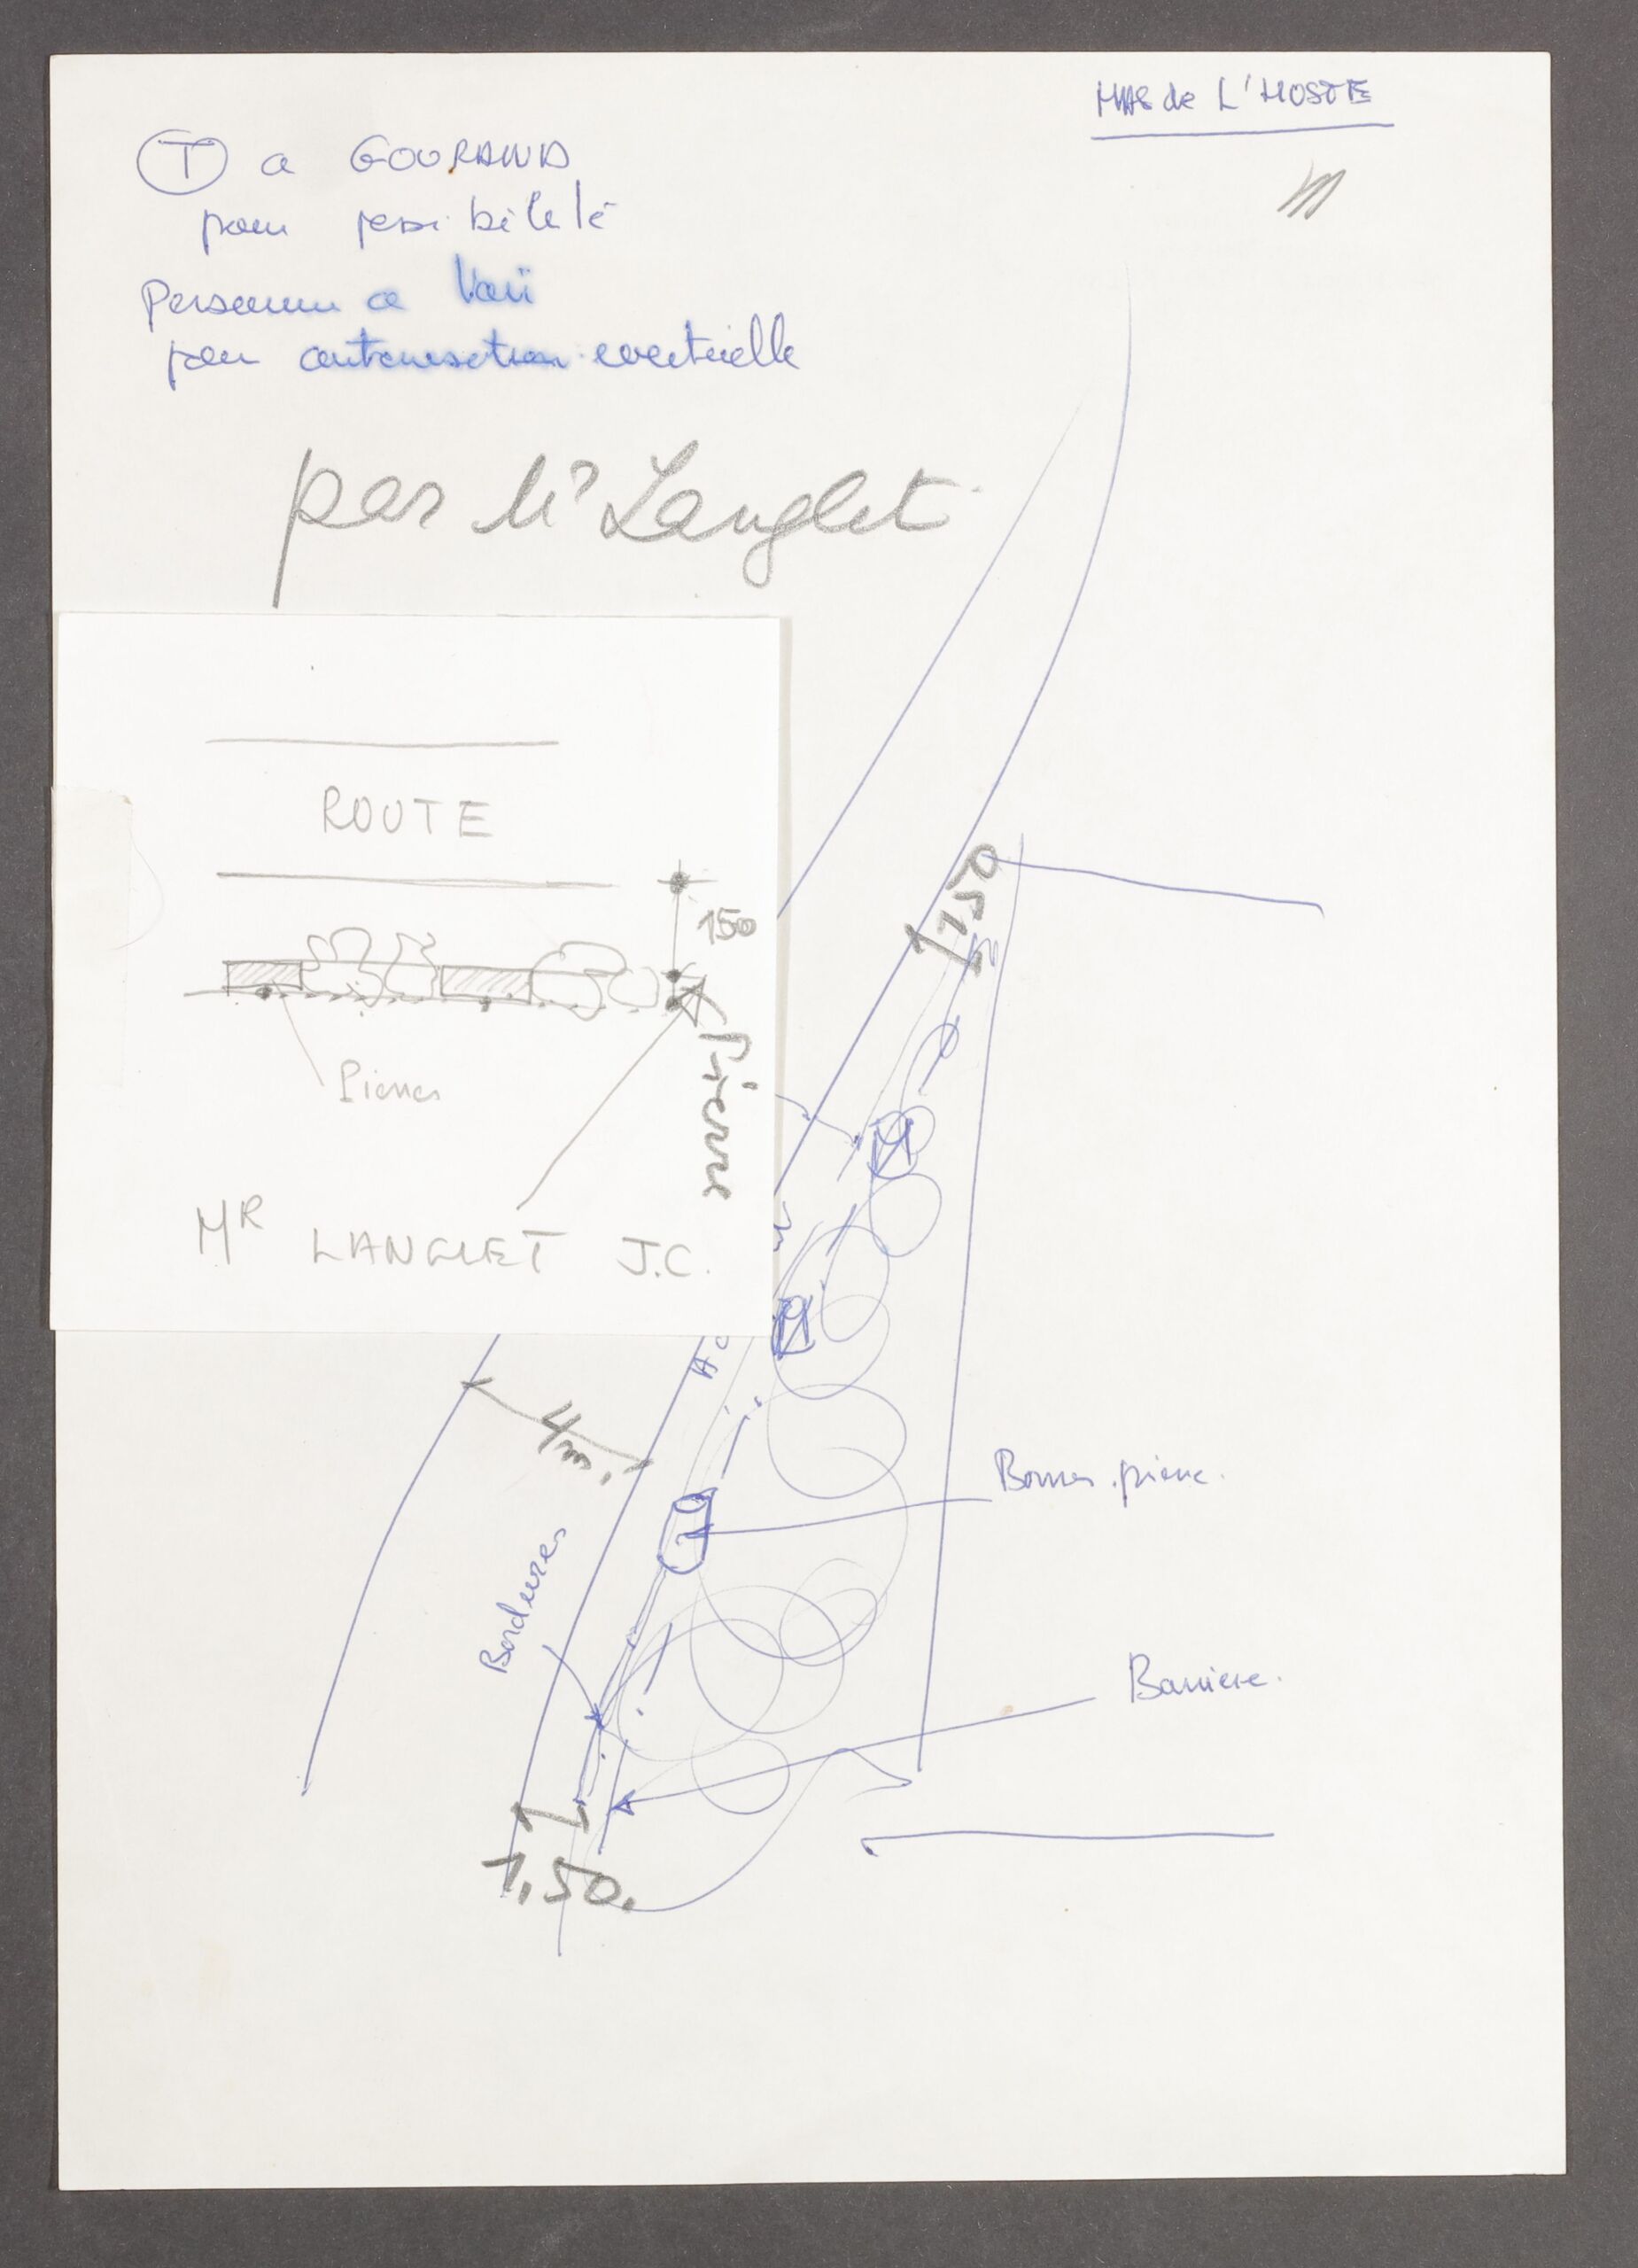 MAS de L'HOSTE
T a GOURAND
pour possibilité
Personne a Voir
pour autorisation eventuelle
par Mr Langlet
ROUTE
150
Pierres
Pierre
MR LANGLET J.C.
1,50
4m.
Bornes pierre.
Bordures
Barriere.
1,50.